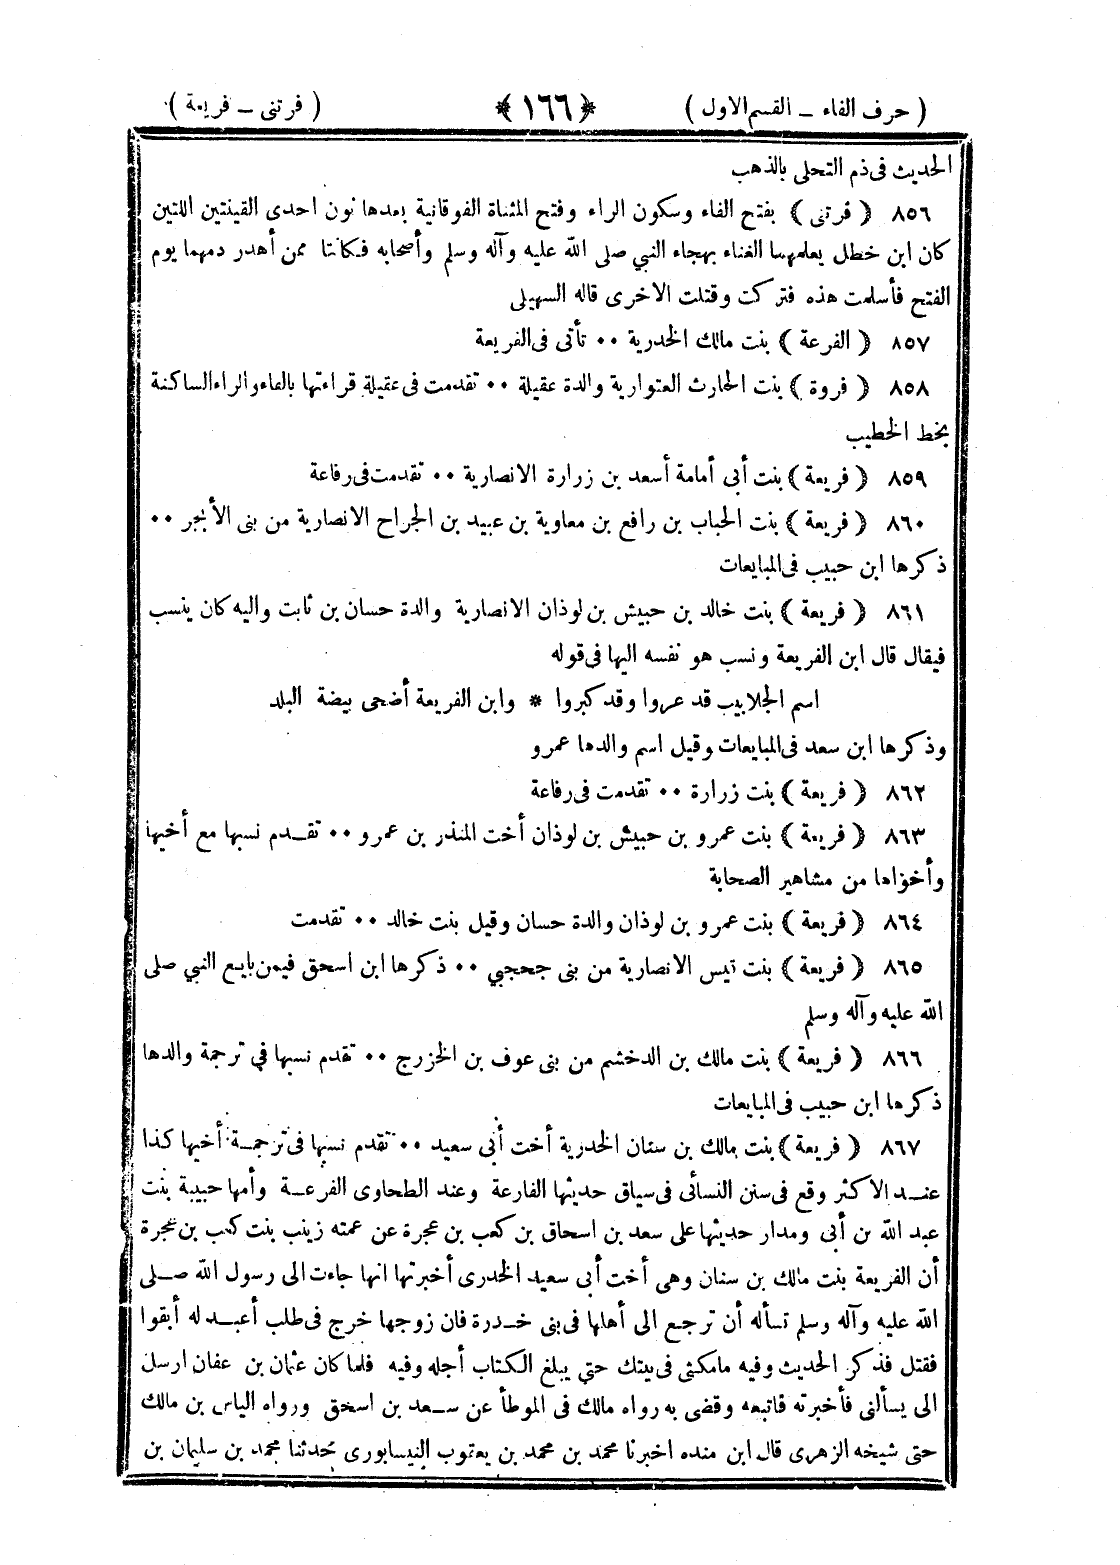 ( حرف الفاء ـ القسم الاول ) ﴿ ١٦٦ ﴾ ( فرتنى ـ فريعة )
الحديث فى ذم التحلى بالذهب
٨٥٦ ( فرتنى ) بفتح الفاء وسكون الراء وفتح المثناة الفوقانية بعدها نون احدى القينتين اللتين
كان ابن خطل يعلمهما الغناء بهجاء النبي صلى الله عليه وآله وسلم وأصحابه فكانتا ممن أهدر دمهما يوم
الفتح فأسلمت هذه فتركت وقتلت الاخرى قاله السهيلى
٨٥٧ ( الفرعة ) بنت مالك الخدرية ٠٠ تأتى فى الفريعة
٨٥٨ ( فروة ) بنت الحارث العتوارية والدة عقيلة ٠٠ تقدمت فى عقيلة قراءتها بالفاء والراء الساكنة
بخط الخطيب
٨٥٩ ( فريعة ) بنت أبى أمامة أسعد بن زرارة الانصارية ٠٠ تقدمت فى رفاعة
٨٦٠ ( فريعة ) بنت الحباب بن رافع بن معاوية بن عبيد بن الجراح الانصارية من بنى الأبجر ٠٠
ذكرها ابن حبيب فى المبايعات
٨٦١ ( فريعة ) بنت خالد بن حبيش بن لوذان الانصارية والدة حسان بن ثابت واليه كان ينسب
فيقال قال ابن الفريعة ونسب هو نفسه اليها فى قوله
اسم الجلابيب قد عروا وقد كبروا * وابن الفريعة أضحى بيضة البلد
وذكرها ابن سعد فى المبايعات وقيل اسم والدها عمرو
٨٦٢ ( فريعة ) بنت زرارة ٠٠ تقدمت فى رفاعة
٨٦٣ ( فريعة ) بنت عمرو بن حبيش بن لوذان أخت المنذر بن عمرو ٠٠ تقدم نسبها مع أخيها
وأخواها من مشاهير الصحابة
٨٦٤ ( فريعة ) بنت عمرو بن لوذان والدة حسان وقيل بنت خالد ٠٠ تقدمت
٨٦٥ ( فريعة ) بنت قيس الانصارية من بنى جحجبي ٠٠ ذكرها ابن اسحق فيمن بايع النبي صلى
الله عليه وآله وسلم
٨٦٦ ( فريعة ) بنت مالك بن الدخشم من بنى عوف بن الخزرج ٠٠ تقدم نسبها في ترجمة والدها
ذكرها ابن حبيب فى المبايعات
٨٦٧ ( فريعة ) بنت مالك بن سنان الخدرية أخت أبى سعيد ٠٠ تقدم نسبها فى ترجمة أخيها كذا
عند الاكثر وقع فى سنن النسائى فى سياق حديثها الفارعة وعند الطحاوى الفرعة وأمها حبيبة بنت
عبد الله بن أبى ومدار حديثها على سعد بن اسحاق بن كعب بن عجرة عن عمته زينب بنت كعب بن عجرة
أن الفريعة بنت مالك بن سنان وهى أخت أبى سعيد الخدرى أخبرتها انها جاءت الى رسول الله صلى
الله عليه وآله وسلم تسأله أن ترجع الى أهلها فى بنى خدرة فان زوجها خرج فى طلب أعبد له أبقوا
فقتل فذكر الحديث وفيه مامكثى فى بيتك حتي يبلغ الكتاب أجله وفيه فلما كان عثمان بن عفان ارسل
الى يسألنى فأخبرته فاتبعه وقضى به رواه مالك فى الموطأ عن سعد بن اسحق ورواه الياس بن مالك
حتى شيخه الزهرى قال ابن منده اخبرنا محمد بن محمد بن يعقوب النيسابورى حدثنا محمد بن سليمان بن